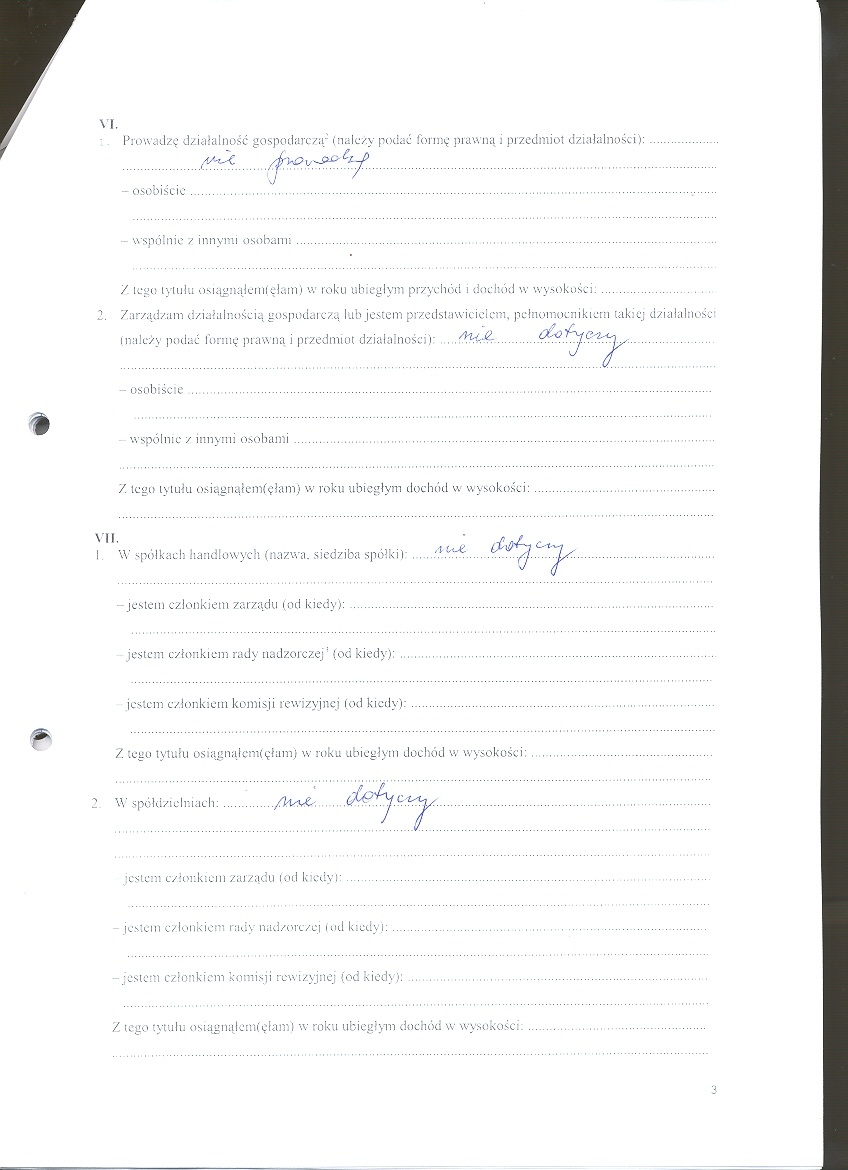 VI.
1. Prowadzę działalność gospodarczą² (należy podać formę prawną i przedmiot działalności): ....................
nie prowadzę
– osobiście ....................
– wspólnie z innymi osobami ....................
Z tego tytułu osiągnąłem(ęłam) w roku ubiegłym przychód i dochód w wysokości: ....................
2. Zarządzam działalnością gospodarczą lub jestem przedstawicielem, pełnomocnikiem takiej działalności
(należy podać formę prawną i przedmiot działalności): .... nie dotyczy ....................
– osobiście ....................
– wspólnie z innymi osobami ....................
Z tego tytułu osiągnąłem(ęłam) w roku ubiegłym dochód w wysokości: ....................
VII.
1. W spółkach handlowych (nazwa, siedziba spółki): .... nie dotyczy ....................
– jestem członkiem zarządu (od kiedy): ....................
– jestem członkiem rady nadzorczej³ (od kiedy): ....................
– jestem członkiem komisji rewizyjnej (od kiedy): ....................
Z tego tytułu osiągnąłem(ęłam) w roku ubiegłym dochód w wysokości: ....................
2. W spółdzielniach: .......... nie dotyczy ....................
jestem członkiem zarządu (od kiedy): ....................
– jestem członkiem rady nadzorczej (od kiedy): ....................
– jestem członkiem komisji rewizyjnej (od kiedy): ....................
Z tego tytułu osiągnąłem(ęłam) w roku ubiegłym dochód w wysokości: ....................
3